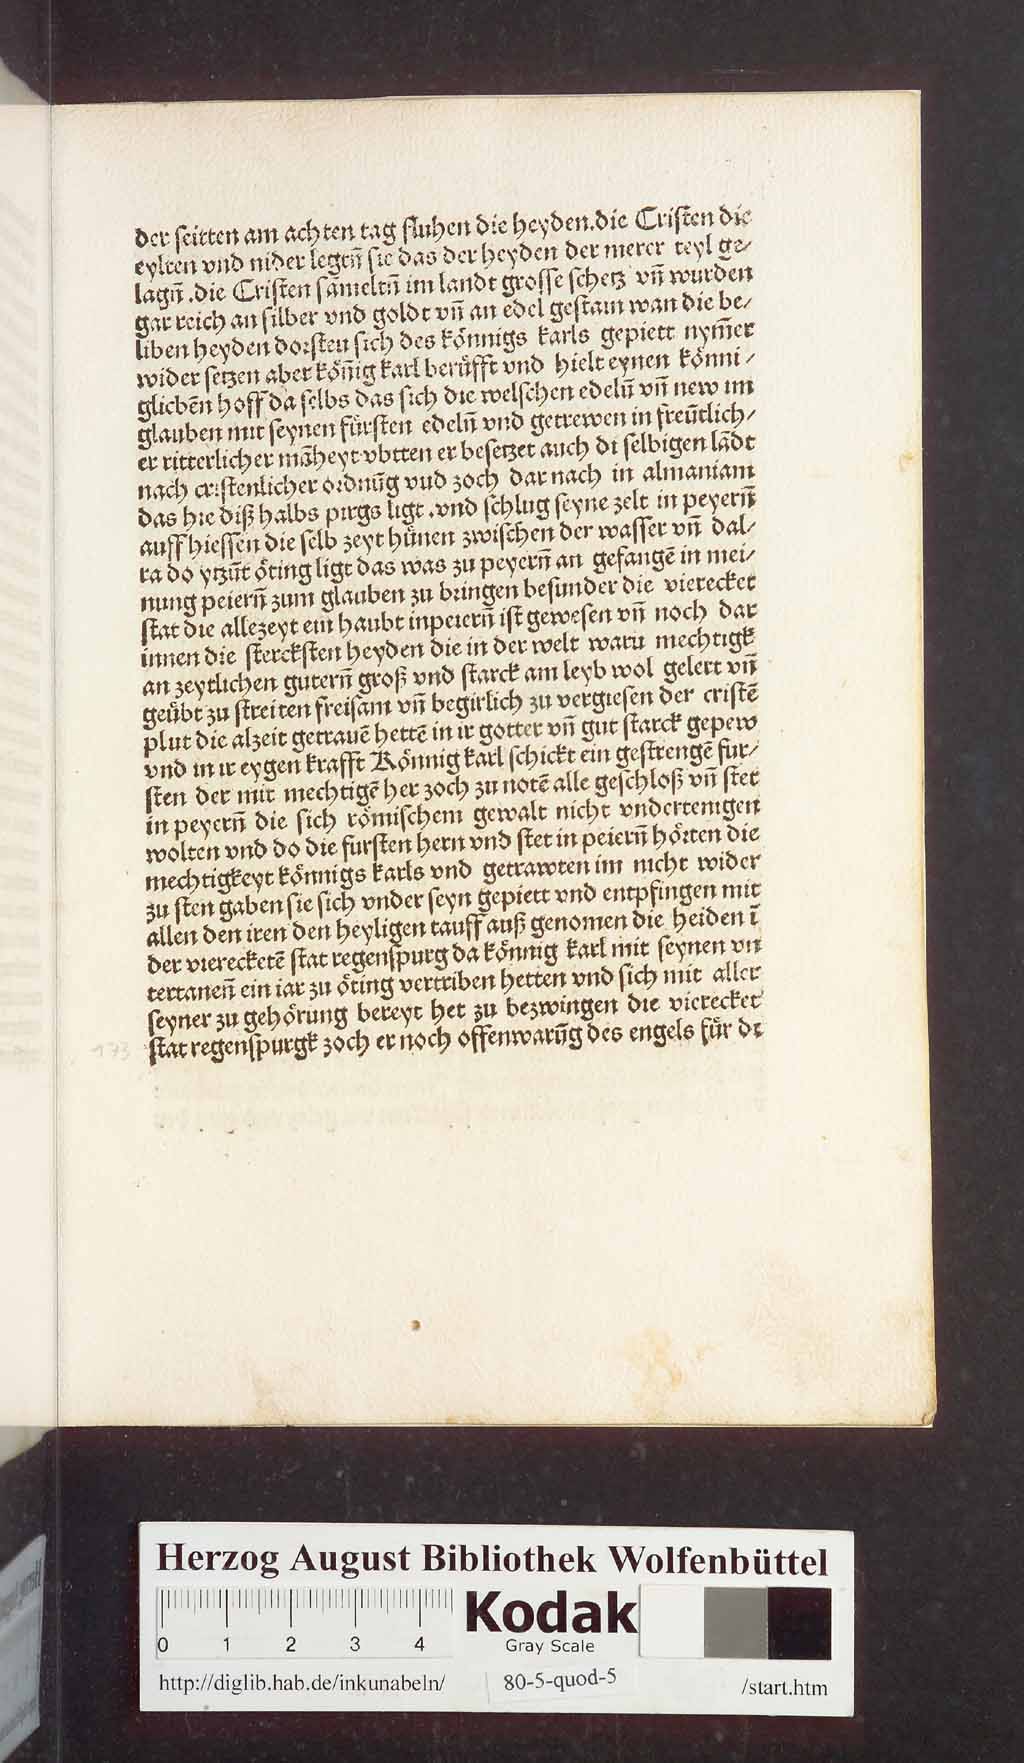 der seitten am achten tag fluhen die heyden.die Cristen die
eylten vnd nider legtñ sie das der heyden der merer teyl ge⸗
lagñ .die Cristen sãmeltñ im landt grosse schetz vñ wurden
gar reich an silber vnd goldt vñ an edel gestain wan die be⸗
liben heyden dorsten sich des koͤnnigs karls gepiett nym̃er
wider setzen aber koͤñig karl beruͤfft vnd hielt eynen koͤnni⸗
glichẽn hoff da selbs das sich die welschen edelñ vñ new im
glauben mit seynen fuͤrsten edelñ vnd getrewen in freũtlich⸗
er ritterlicher mãheyt vbtten er besetzet auch di selbigen lãdt
nach cristenlicher ordnũg vud zoch dar nach in almaniam
das hie diß halbs pirgs ligt .vnd schlug seyne zelt in peyerñ
auff hiessen die selb zeyt huͤnen zwischen der wasser vñ dal⸗
ra do ytzũt oͤting ligt das was zu peyerñ an gefangẽ in mei⸗
nung peierñ zum glauben zu bringen besunder die vierecket
stat die allezeyt ein haubt inpeierñ ist gewesen vñ noch dar
innen die stercksten heyden die in der welt waru mechtigk
an zeytlichen guterñ groß vnd starck am leyb wol gelert vñ
geuͤbt zu streiten freisam vñ begirlich zu vergiesen der cristẽ
plut die alzeit getrauẽ hettẽ in ir gotter vñ gut starck gepew
vnd in ir eygen krafft Koͤnnig karl schickt ein gestrengẽ fur⸗
sten der mit mechtigẽ her zoch zu notẽ alle geschloß vñ stet
in peyerñ die sich roͤmischem gewalt nicht vndertenigen
wolten vnd do die fursten hern vnd stet in peierñ hoͤrten die
mechtigkeyt koͤnnigs karls vnd getrawten im nicht wider
zu sten gaben sie sich vnder seyn gepiett vnd entpfingen mit
allen den iren den heyligen tauff auß genomen die heiden ĩ
der viereckctẽ stat regenspurg da koͤnnig karl mit seynen vn
tertaneñ ein iar zu oͤting vertriben hetten vnd sich mit aller
seyner zu gehoͤrung bereyt het zu bezwingen die vierecket
stat regenspurgk zoch er noch offenwarũg des engels fuͤr di
173
Herzog August Bibliothek Wolfenbüttel
0 1 2 3 4
Kodak
Gray Scale
http://diglib.hab.de/inkunabeln/ 80-5-quod-5 /start.htm